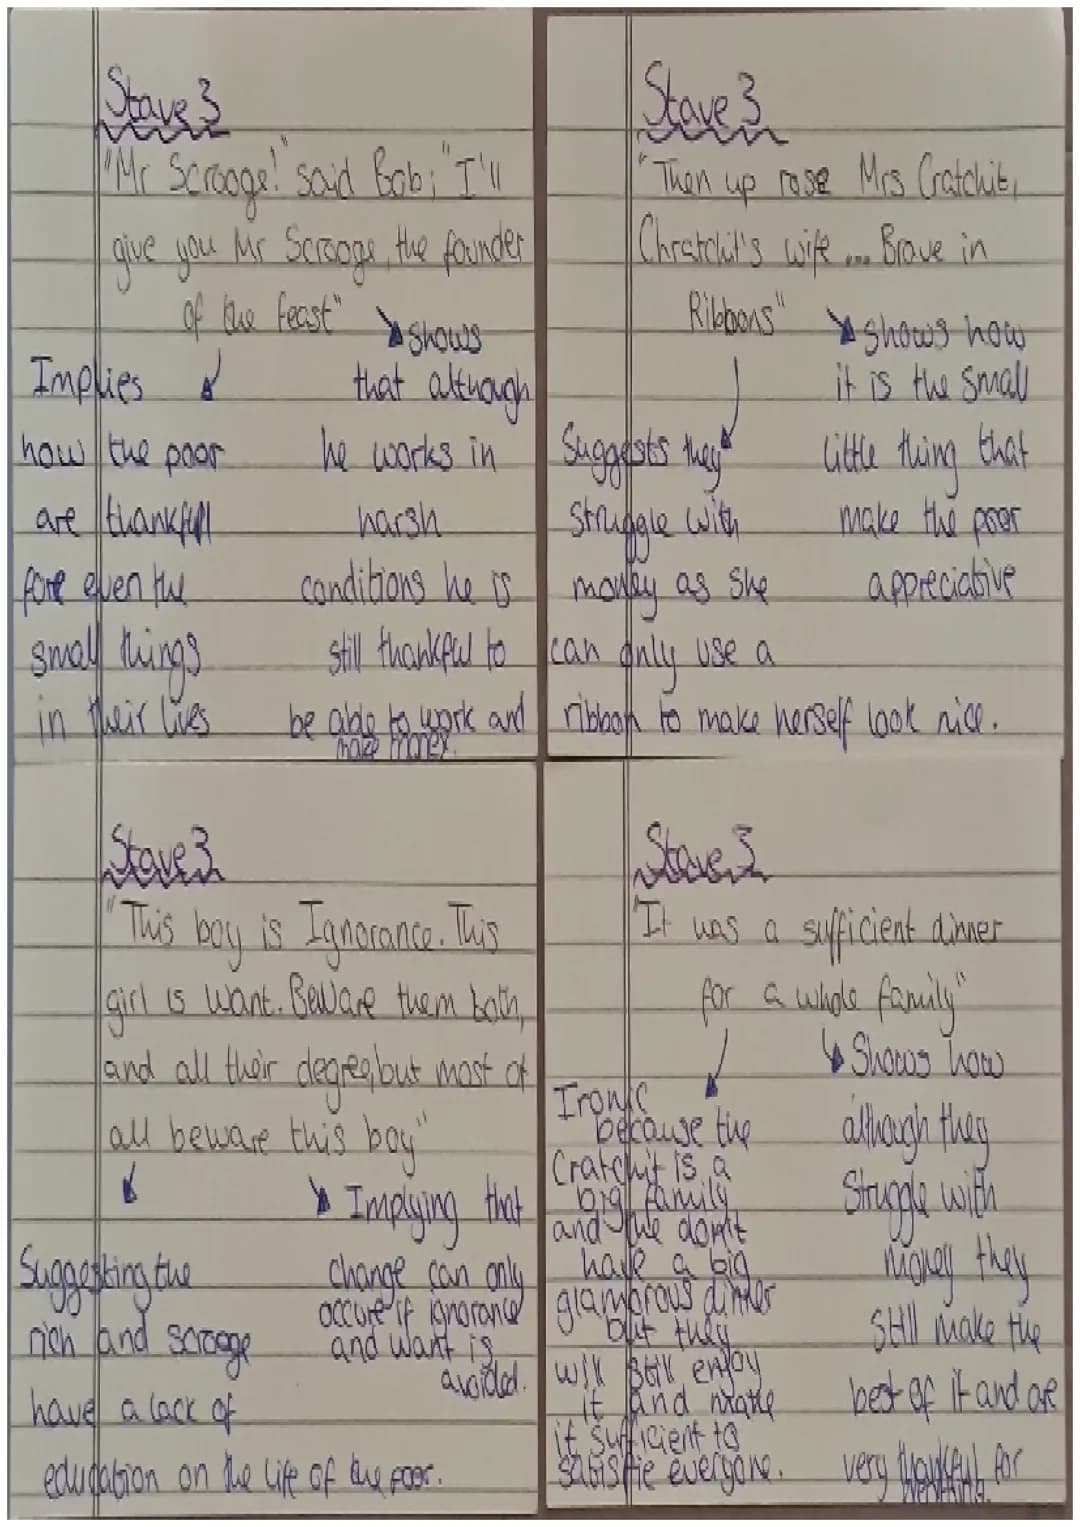 Stave 3
"Mr Scrooge!" said Bob; "I'll
give you Mr Scrooge, the founder
of the feast"
Implies
how the poor
are thankfull
fore even the
small things
in their lives
Shows
that although
he works in
harsh
conditions he is
still thankful to
be able to work and
make money.
Stave 3
"Then up rose Mrs Cratchit,
Chratchit's wife ... Brave in
Ribbons"
Suggests they
struggle with
money as she
can only use a
ribbon to make herself look nice.
shows how
it is the small
little thing that
make the poor
appreciative
Stave 3
"This boy is Ignorance. This
girl is want. Beware them both,
and all their degree, but most of
all beware this boy"
Suggesting the
rich and scrooge
have a lack of
education on the life of the poor.
Implying that
change can only
occure if ignorance
and want is
avoided.
Stave 3
"It was a sufficient dinner
for a whole family"
Ironic
because the
Cratchit is a
big family
and the don't
have a big
glamorous dinner
but they
will still enjoy
it and make
it sufficient to
satisfie everyone.
Shows how
although they
struggle with
money they
still make the
best of it and are
very thankful for
everything.